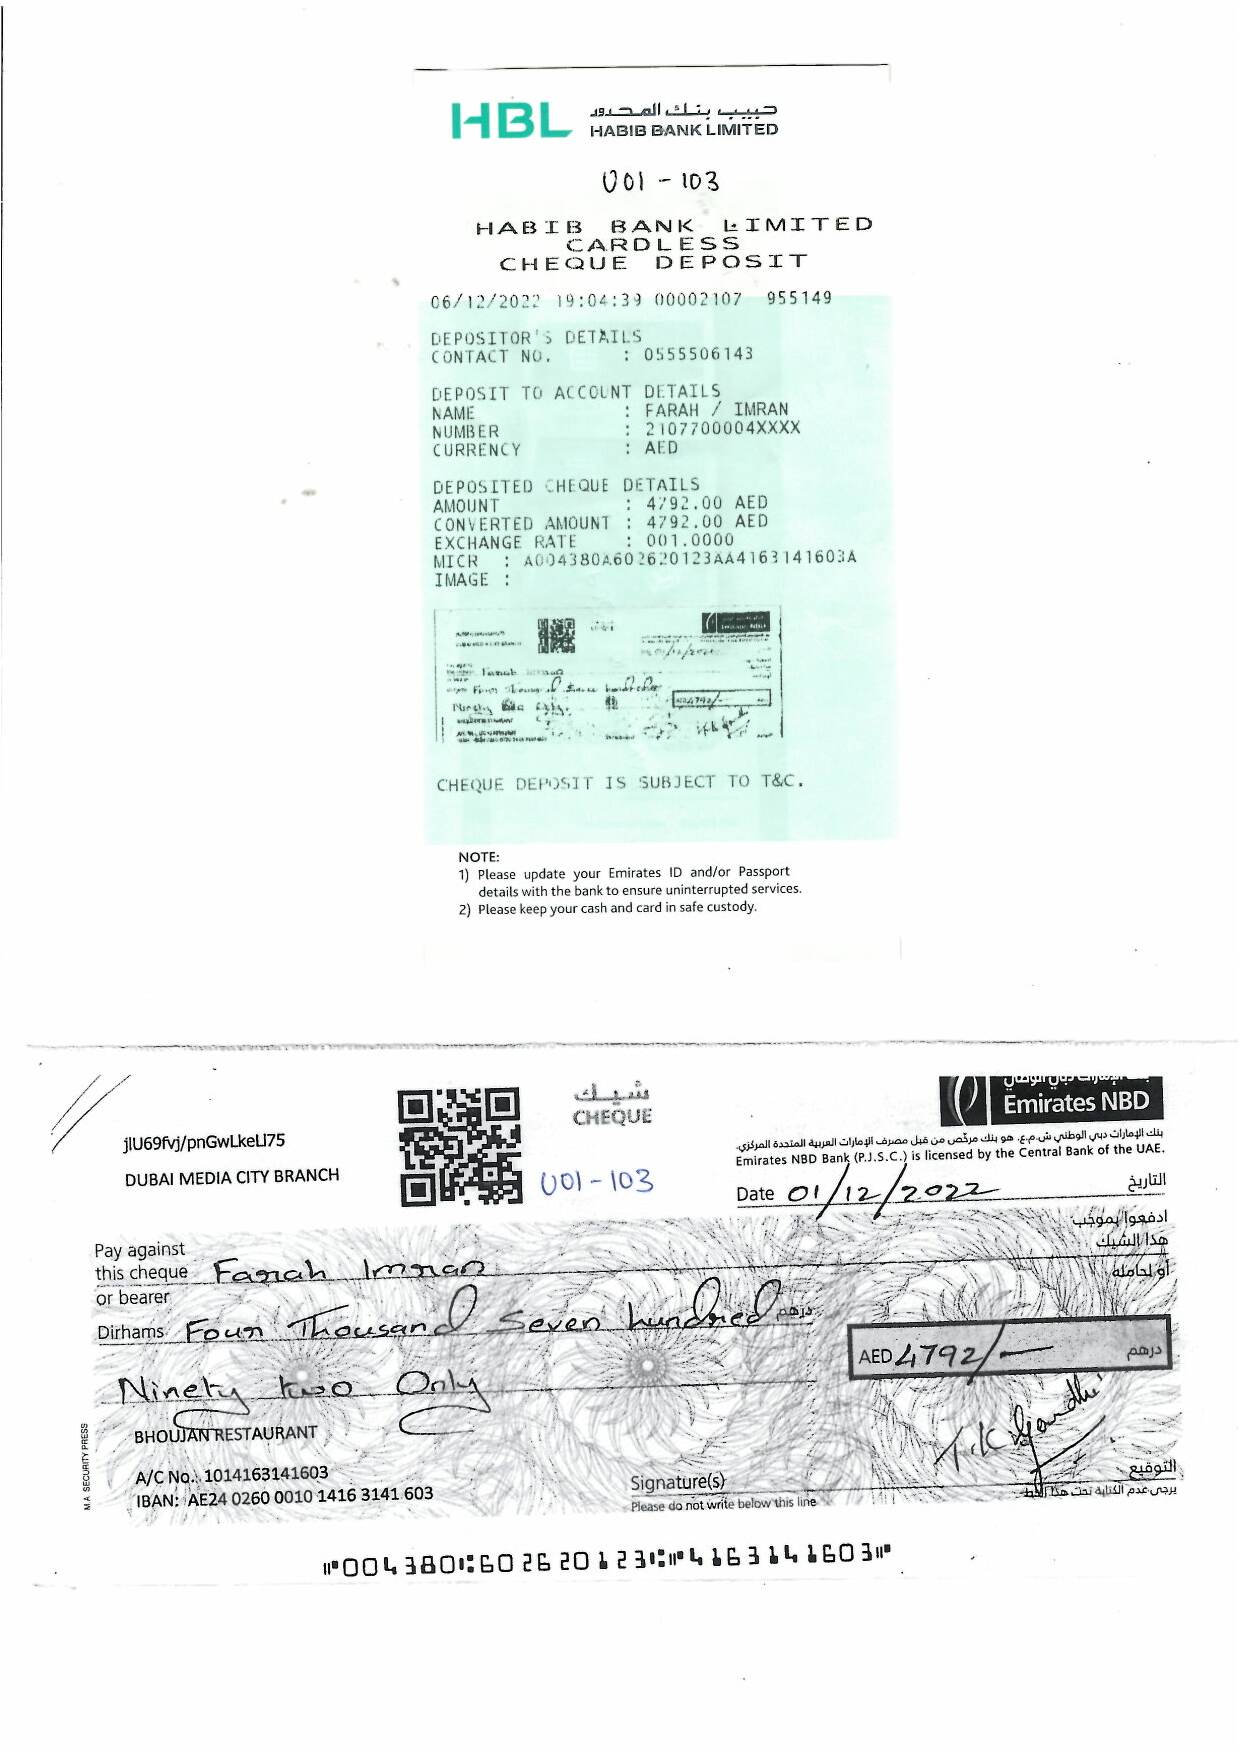 HBL حبيب بنك المحدود
HABIB BANK LIMITED
U01 - 103
HABIB BANK LIMITED
CARDLESS
CHEQUE DEPOSIT
06/12/2022 19:04:39 00002107 955149
DEPOSITOR'S DETAILS
CONTACT NO. : 0555506143
DEPOSIT TO ACCOUNT DETAILS
NAME : FARAH / IMRAN
NUMBER : 2107700004XXXX
CURRENCY : AED
DEPOSITED CHEQUE DETAILS
AMOUNT : 4792.00 AED
CONVERTED AMOUNT : 4792.00 AED
EXCHANGE RATE : 001.0000
MICR : A004380A602620123AA4163141603A
IMAGE :
CHEQUE DEPOSIT IS SUBJECT TO T&C.
NOTE:
1) Please update your Emirates ID and/or Passport
details with the bank to ensure uninterrupted services.
2) Please keep your cash and card in safe custody.
شيك
CHEQUE
Emirates NBD
jlU69fvj/pnGwLkeLl75
DUBAI MEDIA CITY BRANCH
U01 - 103
بنك الإمارات دبي الوطني ش.م.ع. هو بنك مرخص من قبل مصرف الإمارات العربية المتحدة المركزي.
Emirates NBD Bank (P.J.S.C.) is licensed by the Central Bank of the UAE.
Date 01/12/2022 التاريخ
Pay against ادفعوا بموجب
this cheque Farah Imran هذا الشيك
or bearer أو لحامله
Dirhams Four Thousand Seven hundred درهم
AED 4792/- درهم
Ninety two Only
BHOUJAN RESTAURANT
A/C No.. 1014163141603
IBAN: AE24 0260 0010 1416 3141 603
Signature(s) التوقيع
Please do not write below this line يرجى عدم الكتابة تحت هذا الخط
M.A SECURITY PRESS
⑈004380⑆602620123⑆⑈4163141603⑈